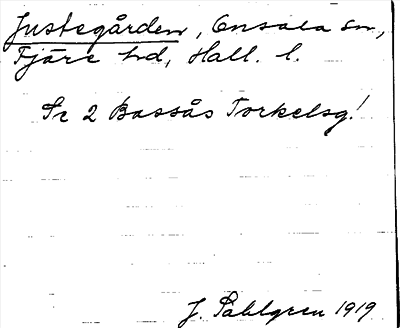 Justegården, Onsala sn,
Fjäre hd, Hall. l.
Se 2 Bassås Torkelsg!
J. Sahlgren 1919